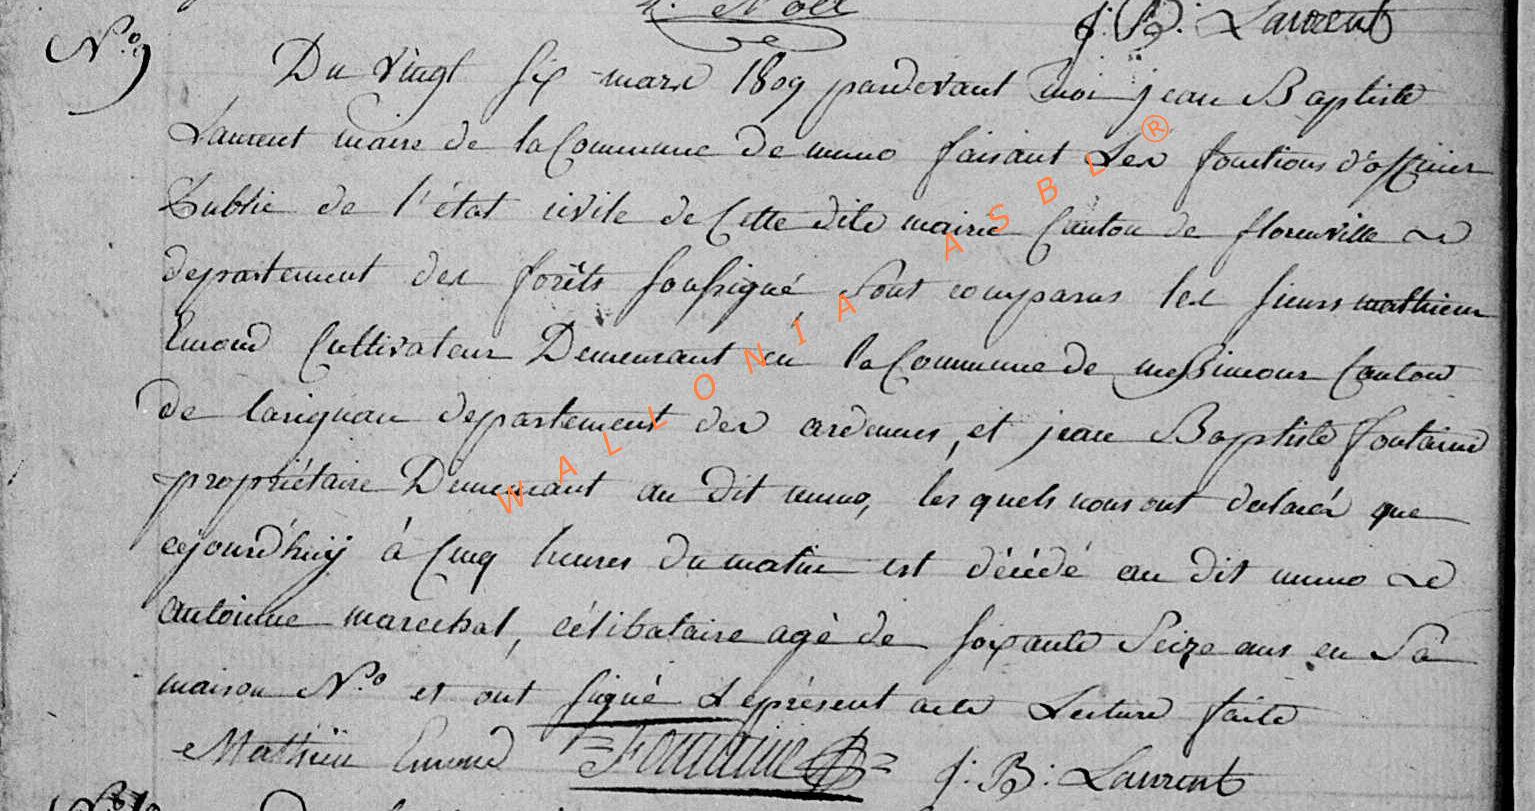 h. Noël
J: B: Laurent
N.o 9
Du vingt six mars 1809 pardevant moi jean Baptiste
Laurent maire de la Commune de muno faisant Les fonctions d'officier
Public de l'état civile de Cette dite mairie Canton de florenville
departement des forêts soussigné Sont comparus les sieurs mathieu
Emond Cultivateur Demeurant en la Commune de messincour Canton
de Carignan departement des ardennes, et jean Baptiste fontaine
propriétaire Demeurant au dit muno, les quels nous ont declaré que
cejourd'huÿ à Cinq heures du matin est décédé au dit muno
antoinne marechal, célibataire agé de soixante Seize ans en Sa
maison N.o et ont signé Le présent acte Lecture faite
Mathieu Emond Fontaine J: B: Laurent
WALLONIA ASBL ®